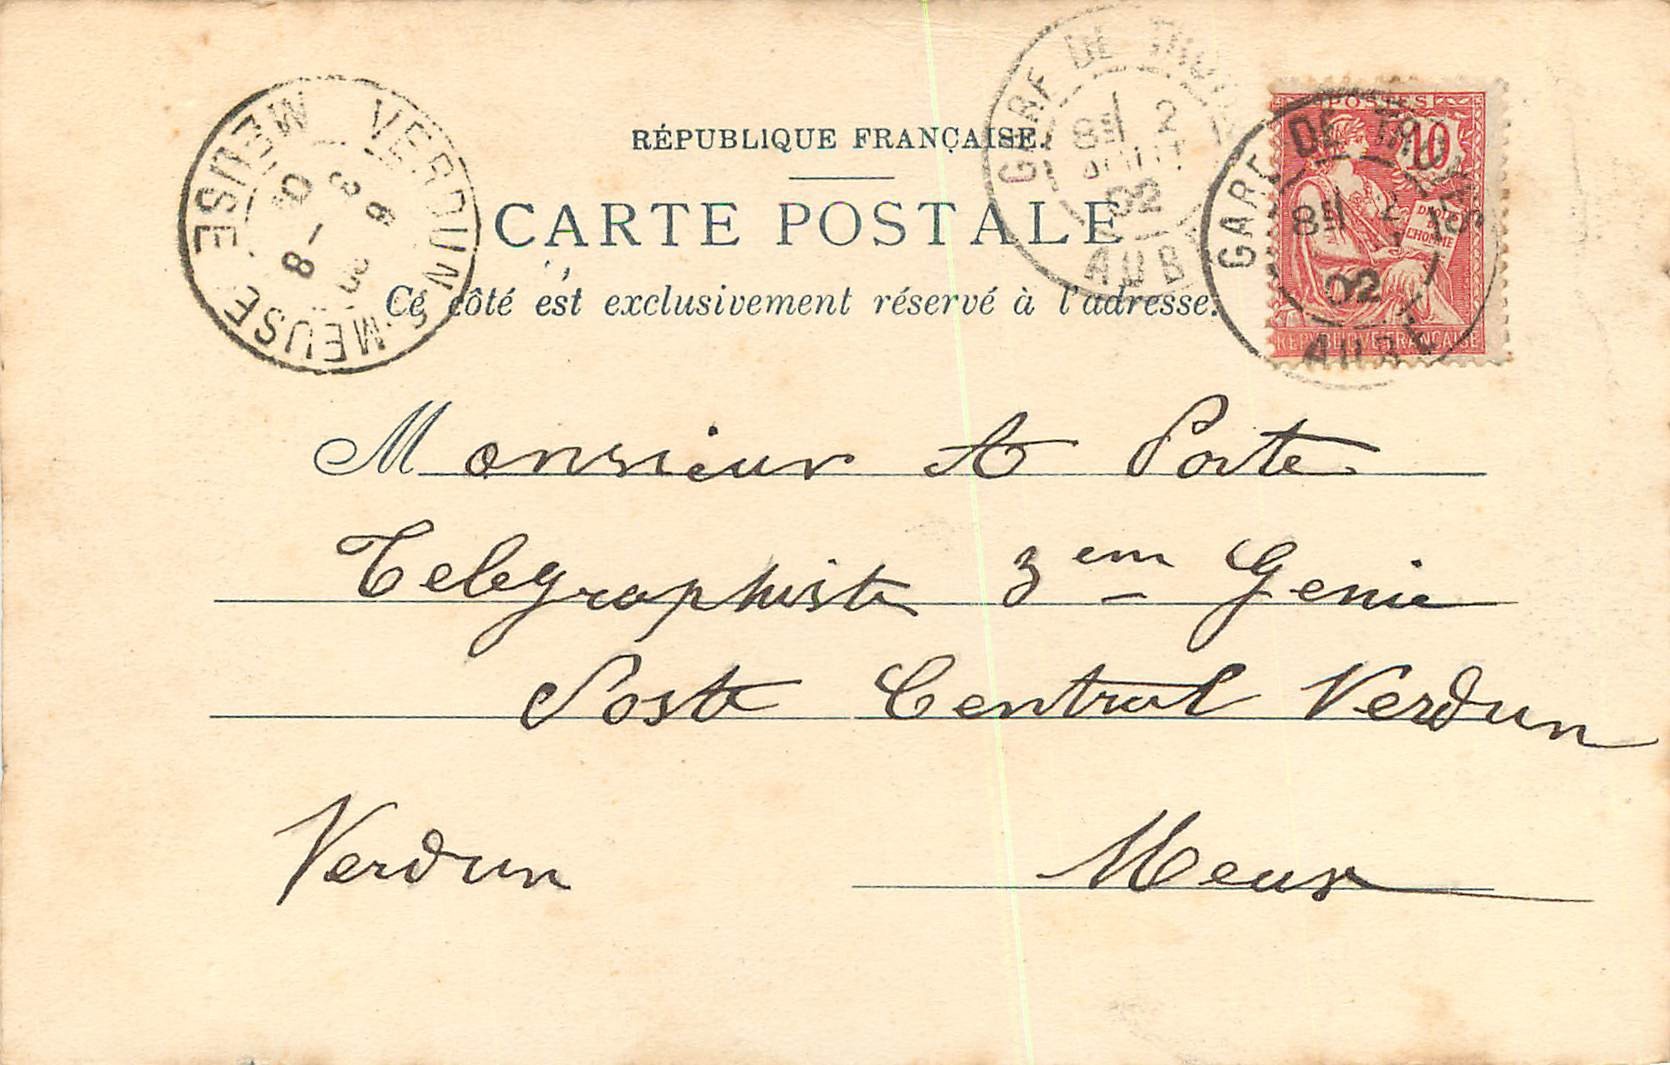 RÉPUBLIQUE FRANÇAISE.
CARTE POSTALE
Ce côté est exclusivement réservé à l'adresse.
Monsieur A Porte
Telegraphiste 3em Genie
Poste Central Verdun
Verdun Meuse
VERDUN S-MEUSE
MEUSE
GARE DE TROYES
8E 2
AOUT
02
AUBE
POSTES
10
DROITS
DE
L'HOMME
REPUBLIQUE FRANÇAISE
GARE DE TROYES
8E 2
02
AUBE